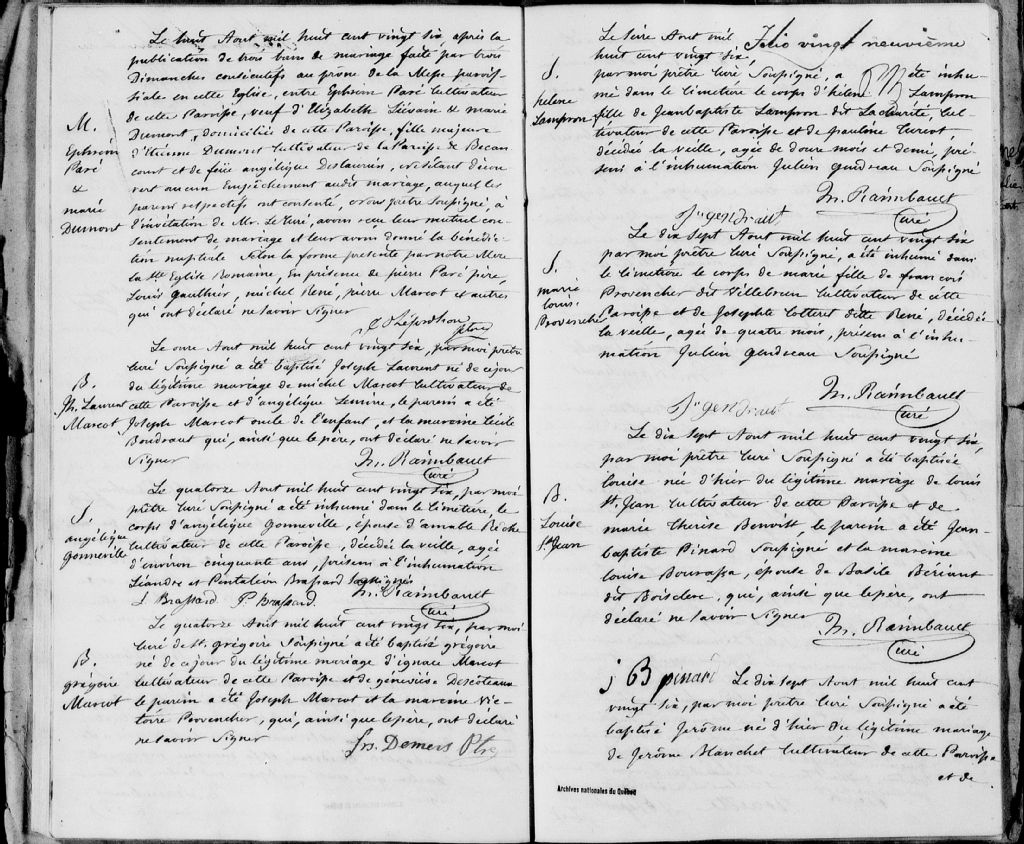 Le huit Aout mil huit cent vingt six après la
publication de trois bans de mariage faite par trois
Dimanches consécutifs au prone de la Messe parois-
siale en cette Eglise, entre Ephrem Paré Cultivateur
de cette Paroisse, veuf d'Elizabeth et marie
Dumont, domiciliée de cette Paroisse, fille majeure
d'Etienne Dumont Cultivateur de la Paroisse de Becan
court et de feüe angélique Deslauriers, ne s'étant décou
vert aucun Empêchement audit mariage, auquel les
parens respectifs ont consenti, Nous prêtre Soussigné, à
l'invitation de Mr. Le Curé, avons reçu leur mutuel con-
sentement de mariage et leur avons donné la bénédic-
tion nuptiale Selon la forme prescrite par notre Mere
la Ste Eglise Romaine, En présence de pierre Paré père,
Louis Gauthier, michel René, pierre Marcot et autres
qui ont déclaré ne savoir Signer
M.
Ephrem
Paré
&
marie
Dumont
ptre
Le onze Aout mil huit cent vingt six, par moi prêtre
Curé Soussigné a été baptisé Joseph Laurent né de ce jour
du légitime mariage de michel Marcot Cultivateur de
cette Paroisse et d'angélique Lemire, le parein a été
Joseph Marcot oncle de l'enfant, et la mareine Cécile
Boudraut qui, ainsi que le père, ont déclaré ne savoir
Signer
B.
Jh. Laurent
Marcot
Jn. Raimbault
Curé
Le quatorze Aout mil huit cent vingt six, par moi
prêtre Curé Soussigné a été inhumé dans le Cimetiere, le
corps d'angélique Gonneville, épouse d'amable Béche
Cultivateur de cette Paroisse, décédée la veille, agée
d'environ cinquante ans, présens à l'inhumation
Léandre et Pantaléon Brassard Soussignés
S.
angélique
Gonneville
L. Brassard P. Brassard.
Jn. Raimbault
Curé
Le quatorze Aout mil huit cent vingt six, par moi
curé de St. grégoire Soussigné a été baptisé grégoire
né de ce jour du légitime mariage d'ignace Marcot
Cultivateur de cette Paroisse et de géneviève Descoteaux
le parein a été Joseph Marcot et la mareine Vic-
toire Provencher, qui, ainsi que le père, ont déclaré
ne savoir Signer
B.
grégoire
Marcot
Frs. Demers Ptre
Folio vingt neuvième
Le seize Aout mil
huit cent vingt six,
par moi prêtre Curé, Soussigné, a été inhu-
mé dans le Cimetiere le corps d'hélene Lampron
fille de Jeanbaptiste Lampron dit Lacharité, Cul-
tivateur de cette Paroisse et de pauline Turcot
décédée la veille, agée de douze mois et demi, pré-
sens à l'inhumation Julien gendreau Soussigné
S.
helene
Lampron
Jn. Raimbault
Curé
Ju gendraut
Le dix Sept Aout mil huit cent vingt six
par moi prêtre Curé Soussigné, a été inhumé dans
le Cimetiere le corps de marie fille de francois
Provencher dit Villebrun Cultivateur de cette
Paroisse et de Josephte Cotteret ditte René, décédée
la veille, agée de quatre mois, présens à l'inhu-
mation Julien gendreau Soussigné
S.
marie
louise
Provencher
Jn. Raimbault
Curé
Ju gendraut
Le dix Sept Aout mil huit cent vingt six,
par moi prêtre Curé Soussigné a été baptisée
louise née d'hier du légitime mariage de louis
St. Jean Cultivateur de cette Paroisse et de
marie Therise Benoitt, le parein a été Jean
baptiste Pinard Soussigné et la mareine
louise Bourassa, épouse de Basile Bériaut
dit Boisclerc, qui, ainsi que le père, ont
déclaré ne savoir Signer
B.
Louise
St. Jean
Jn. Raimbault
Curé
j B pinard
Le dix Sept Aout mil huit cent
vingt six, par moi prêtre Curé Soussigné a été
baptisé Jerôme né d'hier du légitime mariage
de Jerôme Blanchet Cultivateur de cette Paroisse
et de
Archives nationales du Québec